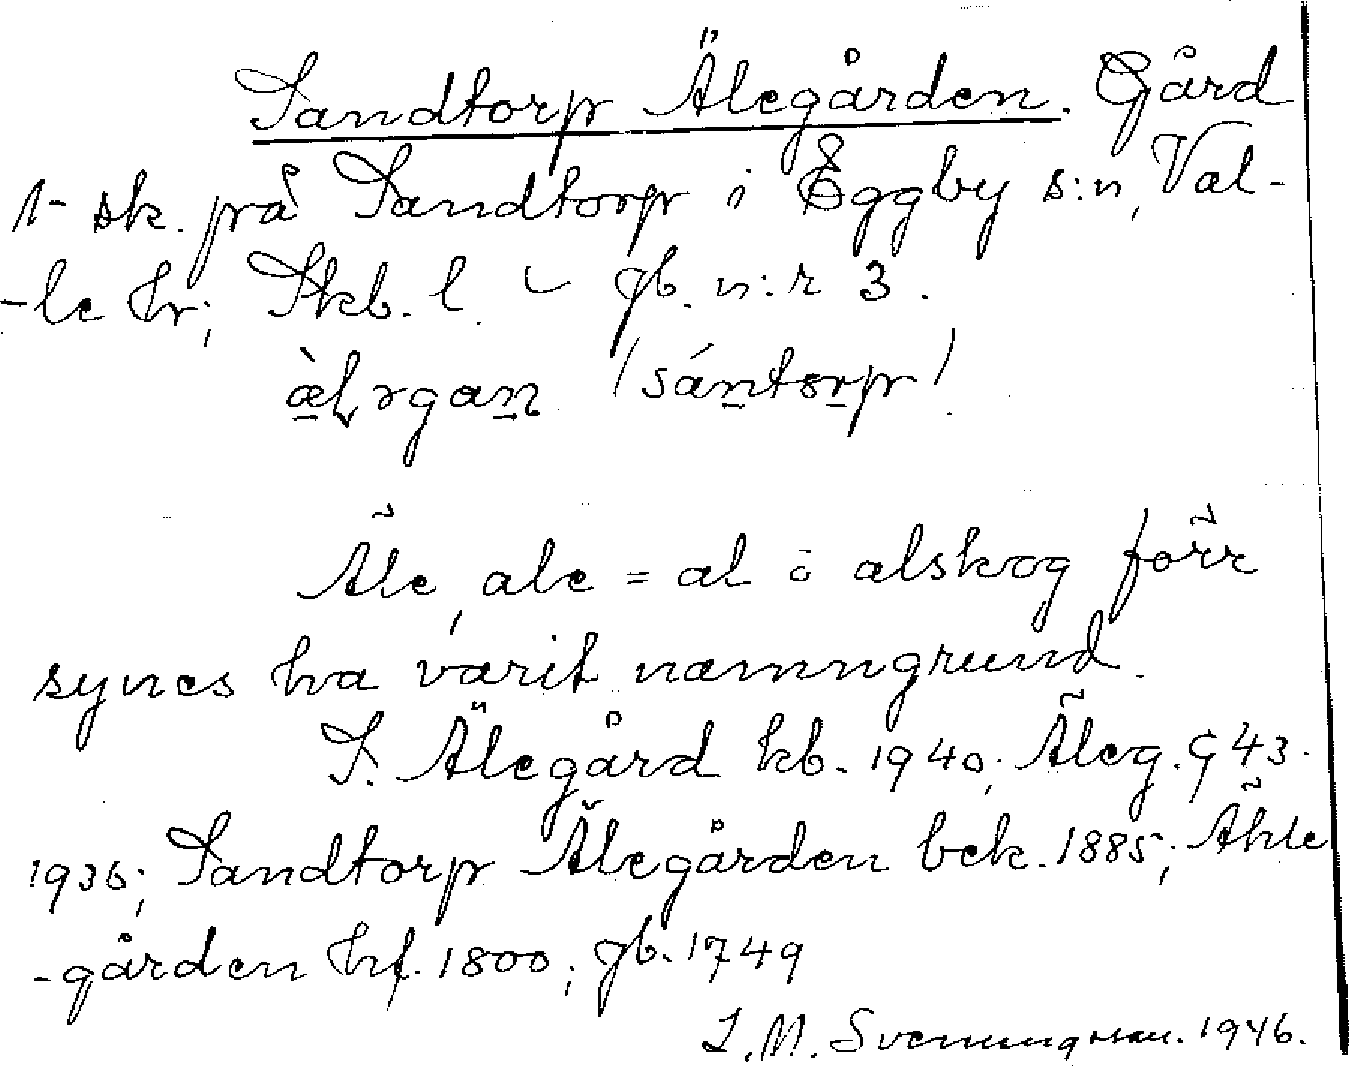 Sandtorp Älegården. Gård
1- sk. på Sandtorp i Eggby s:n, Val-
-le hr; Skb. l. gb. n:r 3.
æ̀lərgan (sántorp)
Äle, ale = al o alskog förr
synes ha varit namngrund.
S. Älegård kb. 1940; Äleg. G 43.
1936; Sandtorp Älegården bek. 1885; Ähle
-gården hf. 1800; gb. 1749
L.M. Svenungsson. 1946.